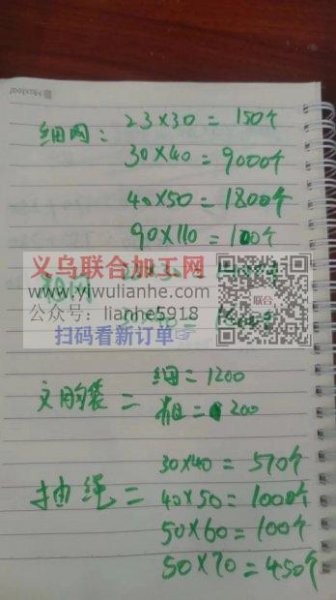 细网: 23×30 = 150个
30×40 = 9000个
40×50 = 1800个
90×110 = 100个
义乌联合加工网
www.yiwulianhe.com
公众号: lianhe5918
扫码看新订单☞
联合
文胸袋 = 细 = 1200
粗 = 200
抽绳 = 30×40 = 570个
40×50 = 1000个
50×60 = 100个
50×70 = 450个